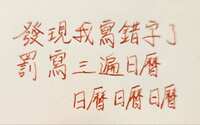 發現我寫錯字了
罰寫三遍日曆
日曆日曆日曆